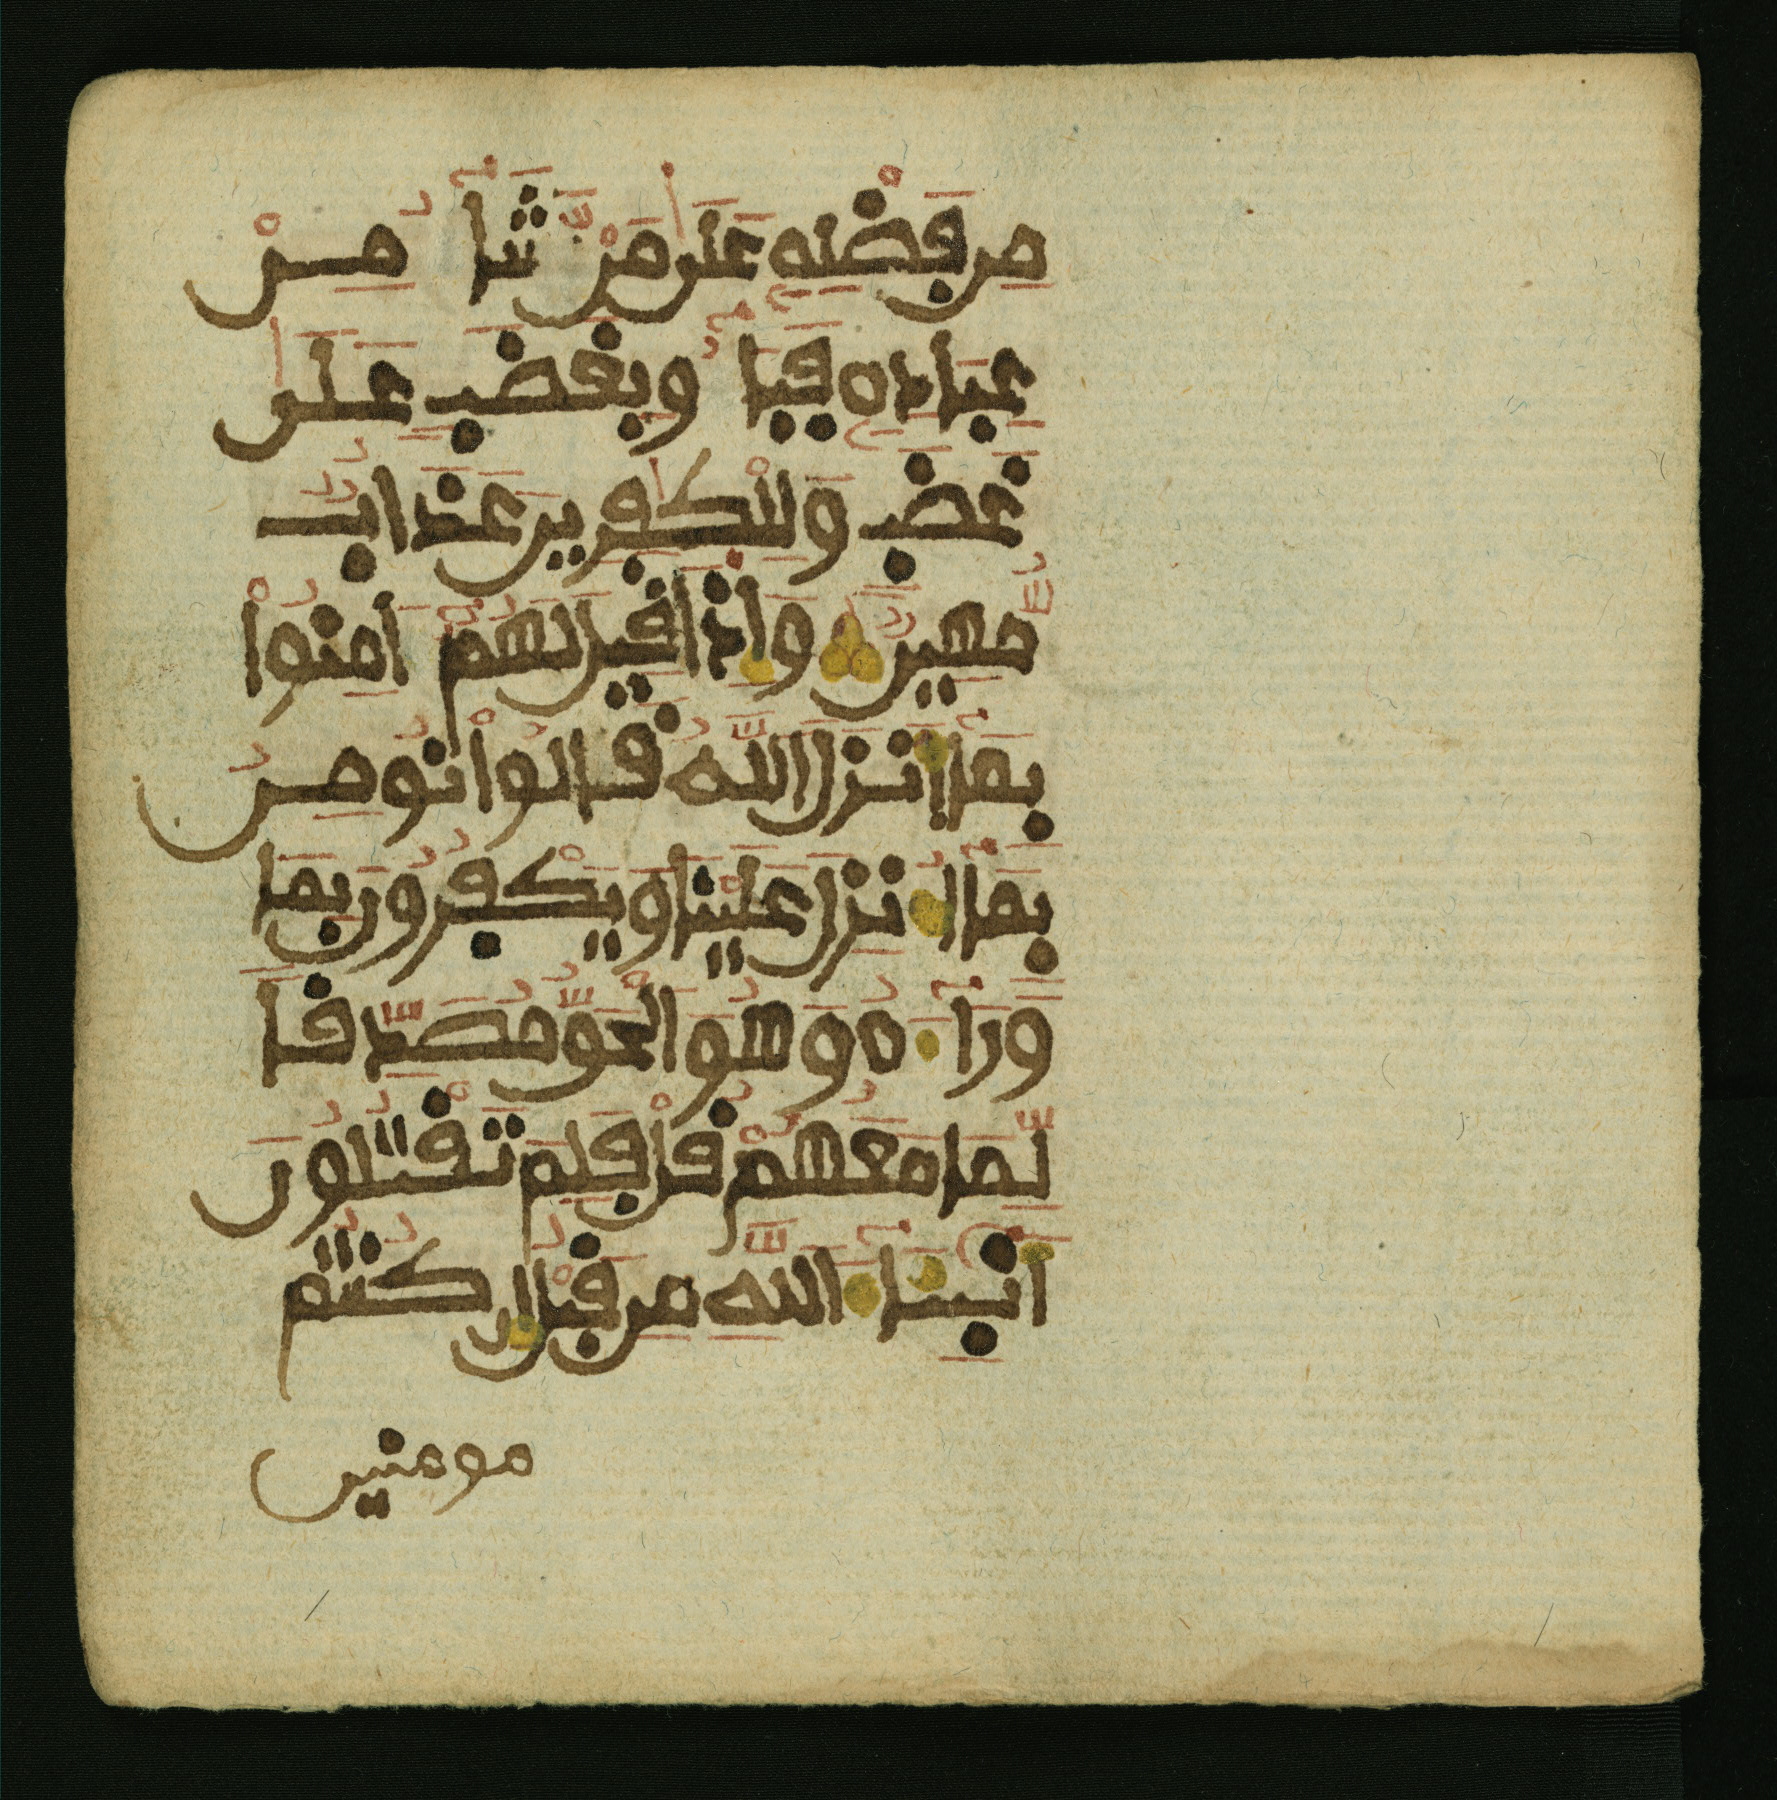 مِن فَضْلِهِ عَلَىٰ مَنْ يَّشَآءُ مِنْ
عِبَادِهِ فَبَآءُو بِغَضَبٍ عَلَىٰ
غَضَبٍ وَلِلْكَٰفِرِينَ عَذَابٌ
مُّهِينٌ وَإِذَا قِيلَ لَهُمُۥٓ ءَامِنُواْ
بِمَآ أَنزَلَ اللَّهُ قَالُواْ نُومِنُ
بِمَآ أُنزِلَ عَلَيْنَا وَيَكْفُرُونَ بِمَا
وَرَآءَهُ وَهُوَ الْحَقُّ مُصَدِّقاً
لِّمَا مَعَهُمْ قُلْ فَلِمَ تَقْتُلُونَ
أَنۢبِئَآءَ اللَّهِ مِن قَبْلُ إِن كُنتُم
مومنين